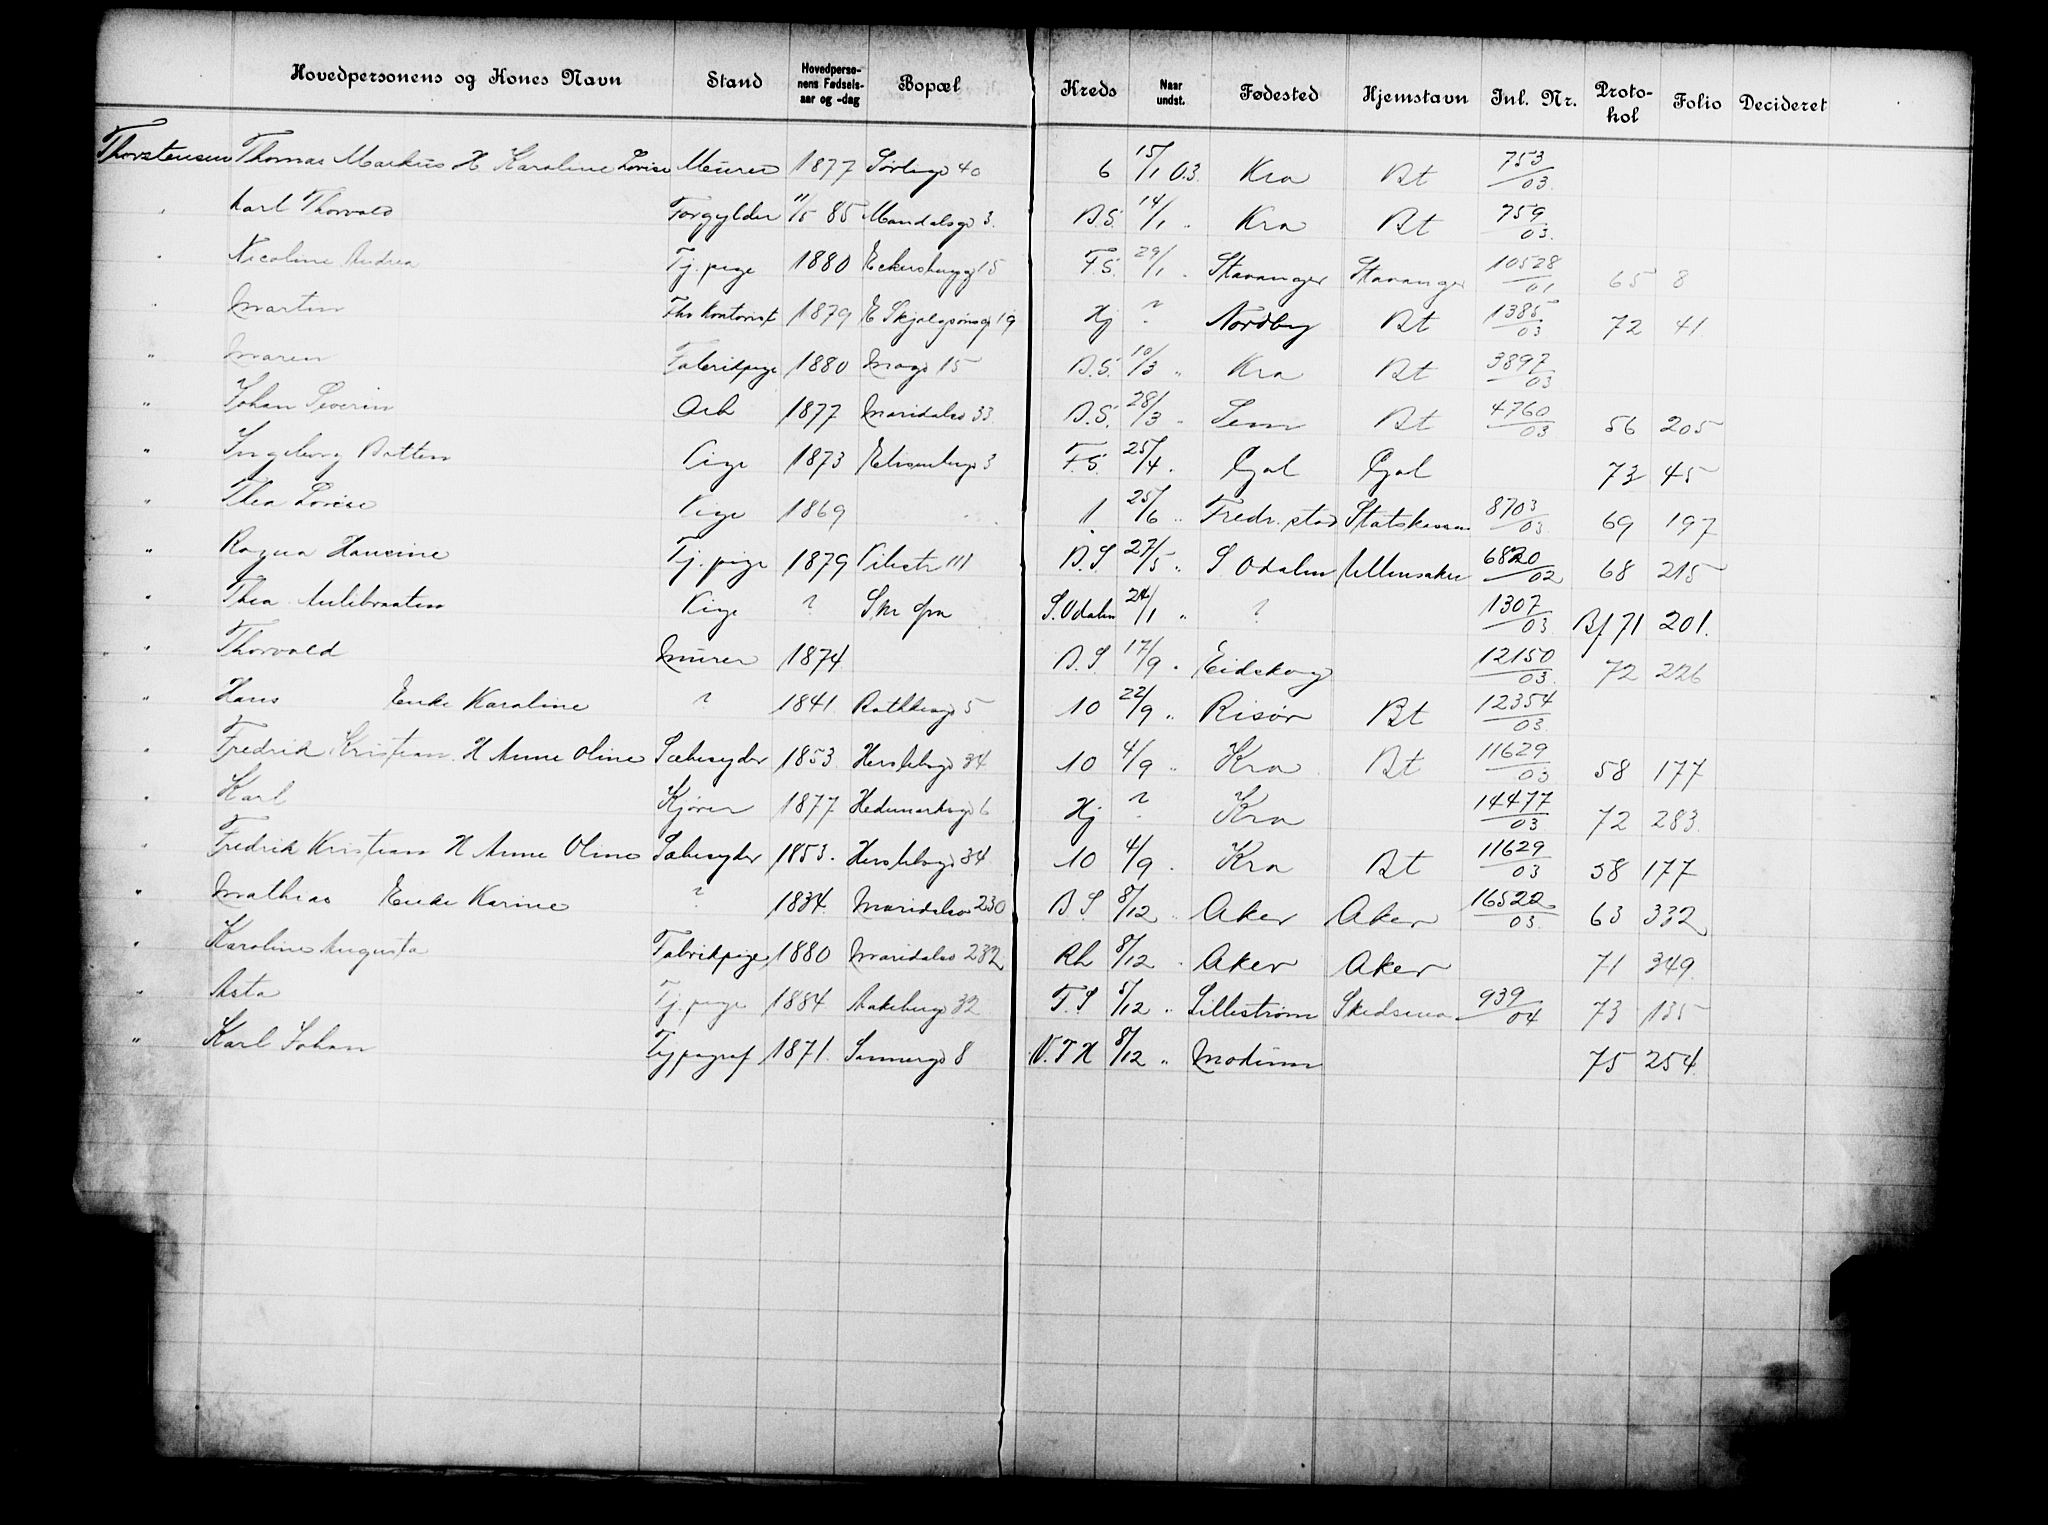 Hovedpersonens og Kones Navn Stand Hovedpersonens Fødselsaar og -dag Bopæl Kreds Naar undst. Fødested Hjemstavn Jnl. Nr. Protokol Folio Decideret
Thorstensen Thomas Markus H Karoline Lovise Murer 1877 Sørligd 40 6 15/1 03. Kra Bt 753/03.
" Karl Thorvald Forgylder 11/5 85 Mandalsgd 3. B.S. 14/1 " Kra Bt 759/03.
" Nicoline Andrea Tj. pige 1880 Eckersbergg 15 F.S. 29/1 " Stavanger Stavanger 10528/01 65 8
" Martin Fhv Kontorist 1879 E Skjalgsønsg 19 Hj ? Nordby Bt 1385/03 72 41.
" Maren Fabrikpige 1880 Mogd 15 B.S. 10/3 " Kra Bt 3897/03
" Johan Severin Arb 1877 Maridalsv 33 B.S. 28/3 " Sem Bt 4760/03 56 205
" Ingeborg Botten Pige 1873 Elisenbergv 3 F.S. 25/4 " Gol Gol 73 45
" Thea Lovise Pige 1869 1 25/6 " Fredr.stad Statskassen 8703/03 69 197
" Ragna Hansine Tj. pige 1879 Pilestr 111 B.S 27/5 " S Odalen Ullensaker 6820/02 68 215
" Thea Aulibraaten Pige ? Skr fra S. Odalen 24/1 " ? 1307/03 Bf 71 201.
" Thorvald Murer 1874 B.S 17/9 " Eidskog 12150/03. 72 226
" Hans Enke Karaline ? 1841. Rathkesgd 5 10 22/9 " Risør Bt 12354/03.
" Fredrik Kristian H Anne Oline Sæbesyder 1853. Herslebsgd 34 10 4/9 " Kra Bt 11629/03 58 177
" Karl Kjører 1877 Hedemarksgd 6 Hj ? Kra 14477/03 72 283.
" Fredrik Kristian H Anne Oline Sæbesyder 1853. Herslebsgd 34 10 4/9 " Kra Bt 11629/03 58 177
" Mathias Enke Karine ? 1834. Maridalsv 230 B S 8/12 " Aker Aker 16522/03. 63 332
" Karoline Augusta Fabrikpige 1880 Maridalsv 232 Rh 8/12 " Aker Aker 71 349.
" Asta Tj. pige 1884. Akebergv 32 F.S 5/12 " Lillestrøm Skedsmo 939/04 73 135
" Karl Johan Typograf 1871. Sannergd 8 V.F H 8/12 " Modum 75 254.